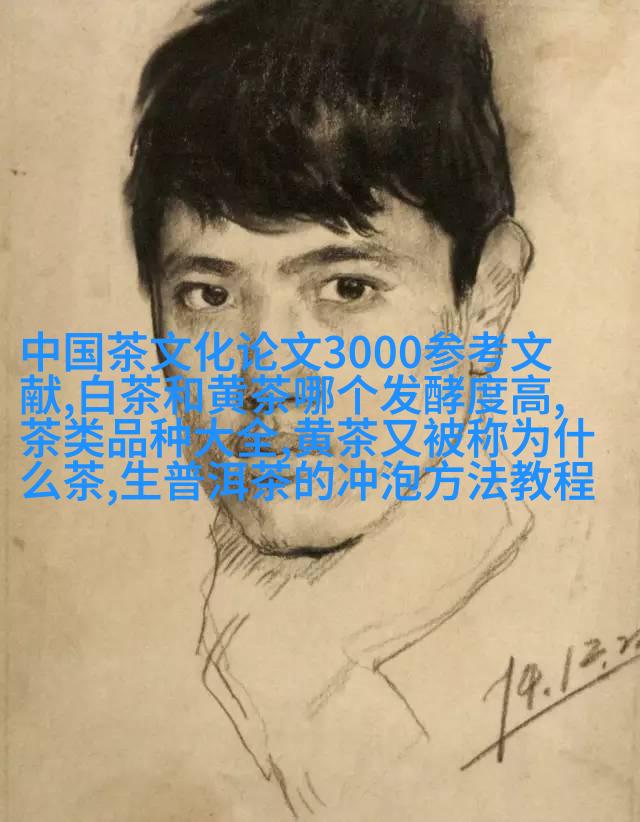 中国茶文化论文3000参考文
献,白茶和黄茶哪个发酵度高,
茶类品种大全,黄茶又被称为什
么茶,生普洱茶的冲泡方法教程